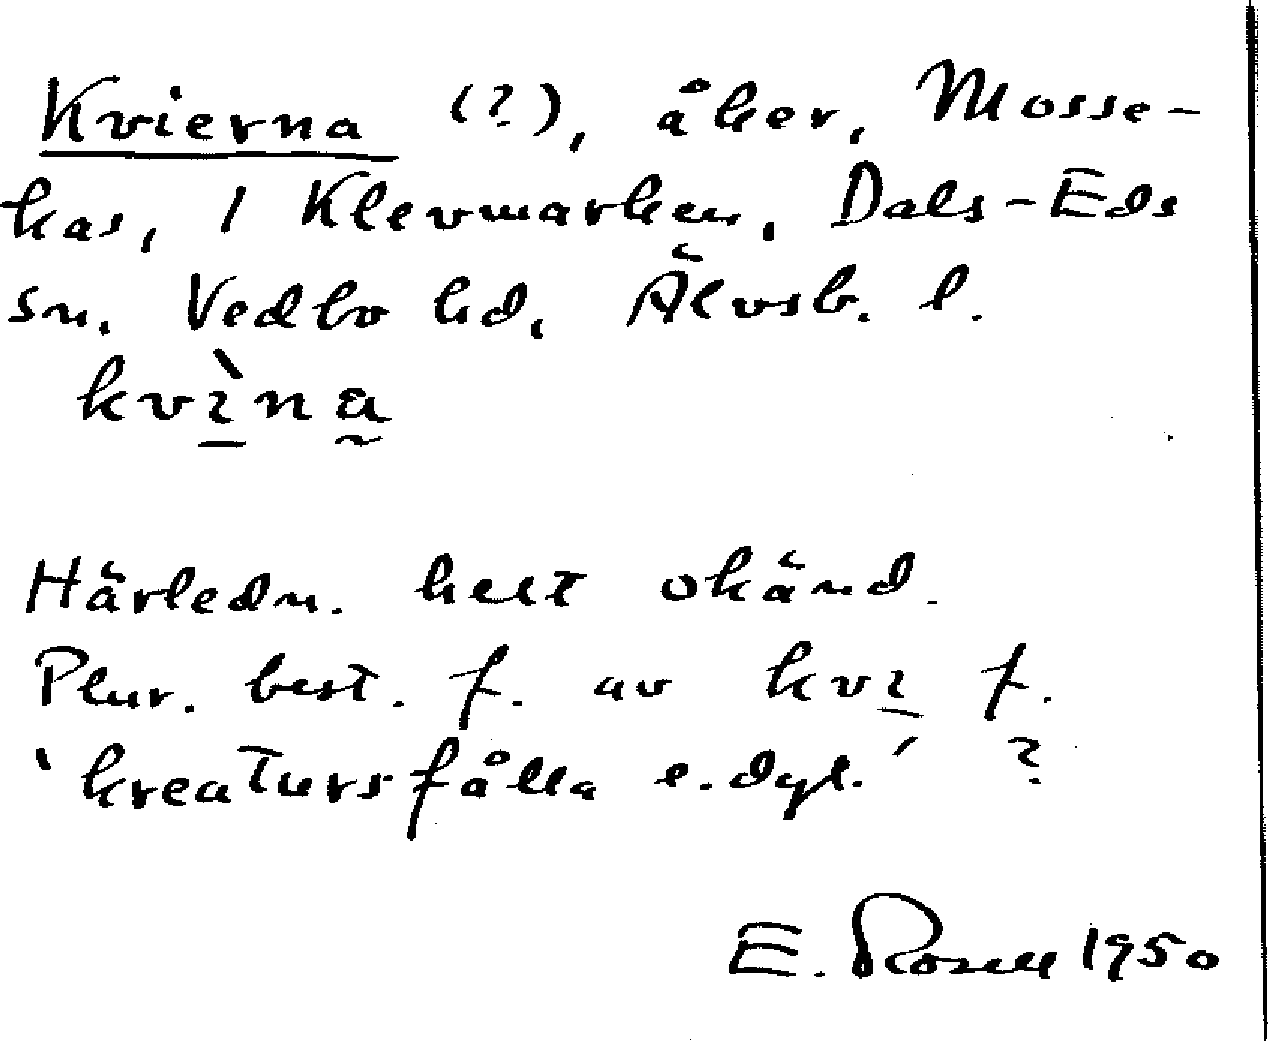 Kvierna (?), åker, Mosse-
kas, 1 Klevmarken, Dals-Eds
sn, Vedbo hd, Älvsb. l.
kvìna
Härledn. helt okänd.
Plur. best. f. av kvi f.
'kreatursfålla e. dyl.' ?
E. Rosell 1950